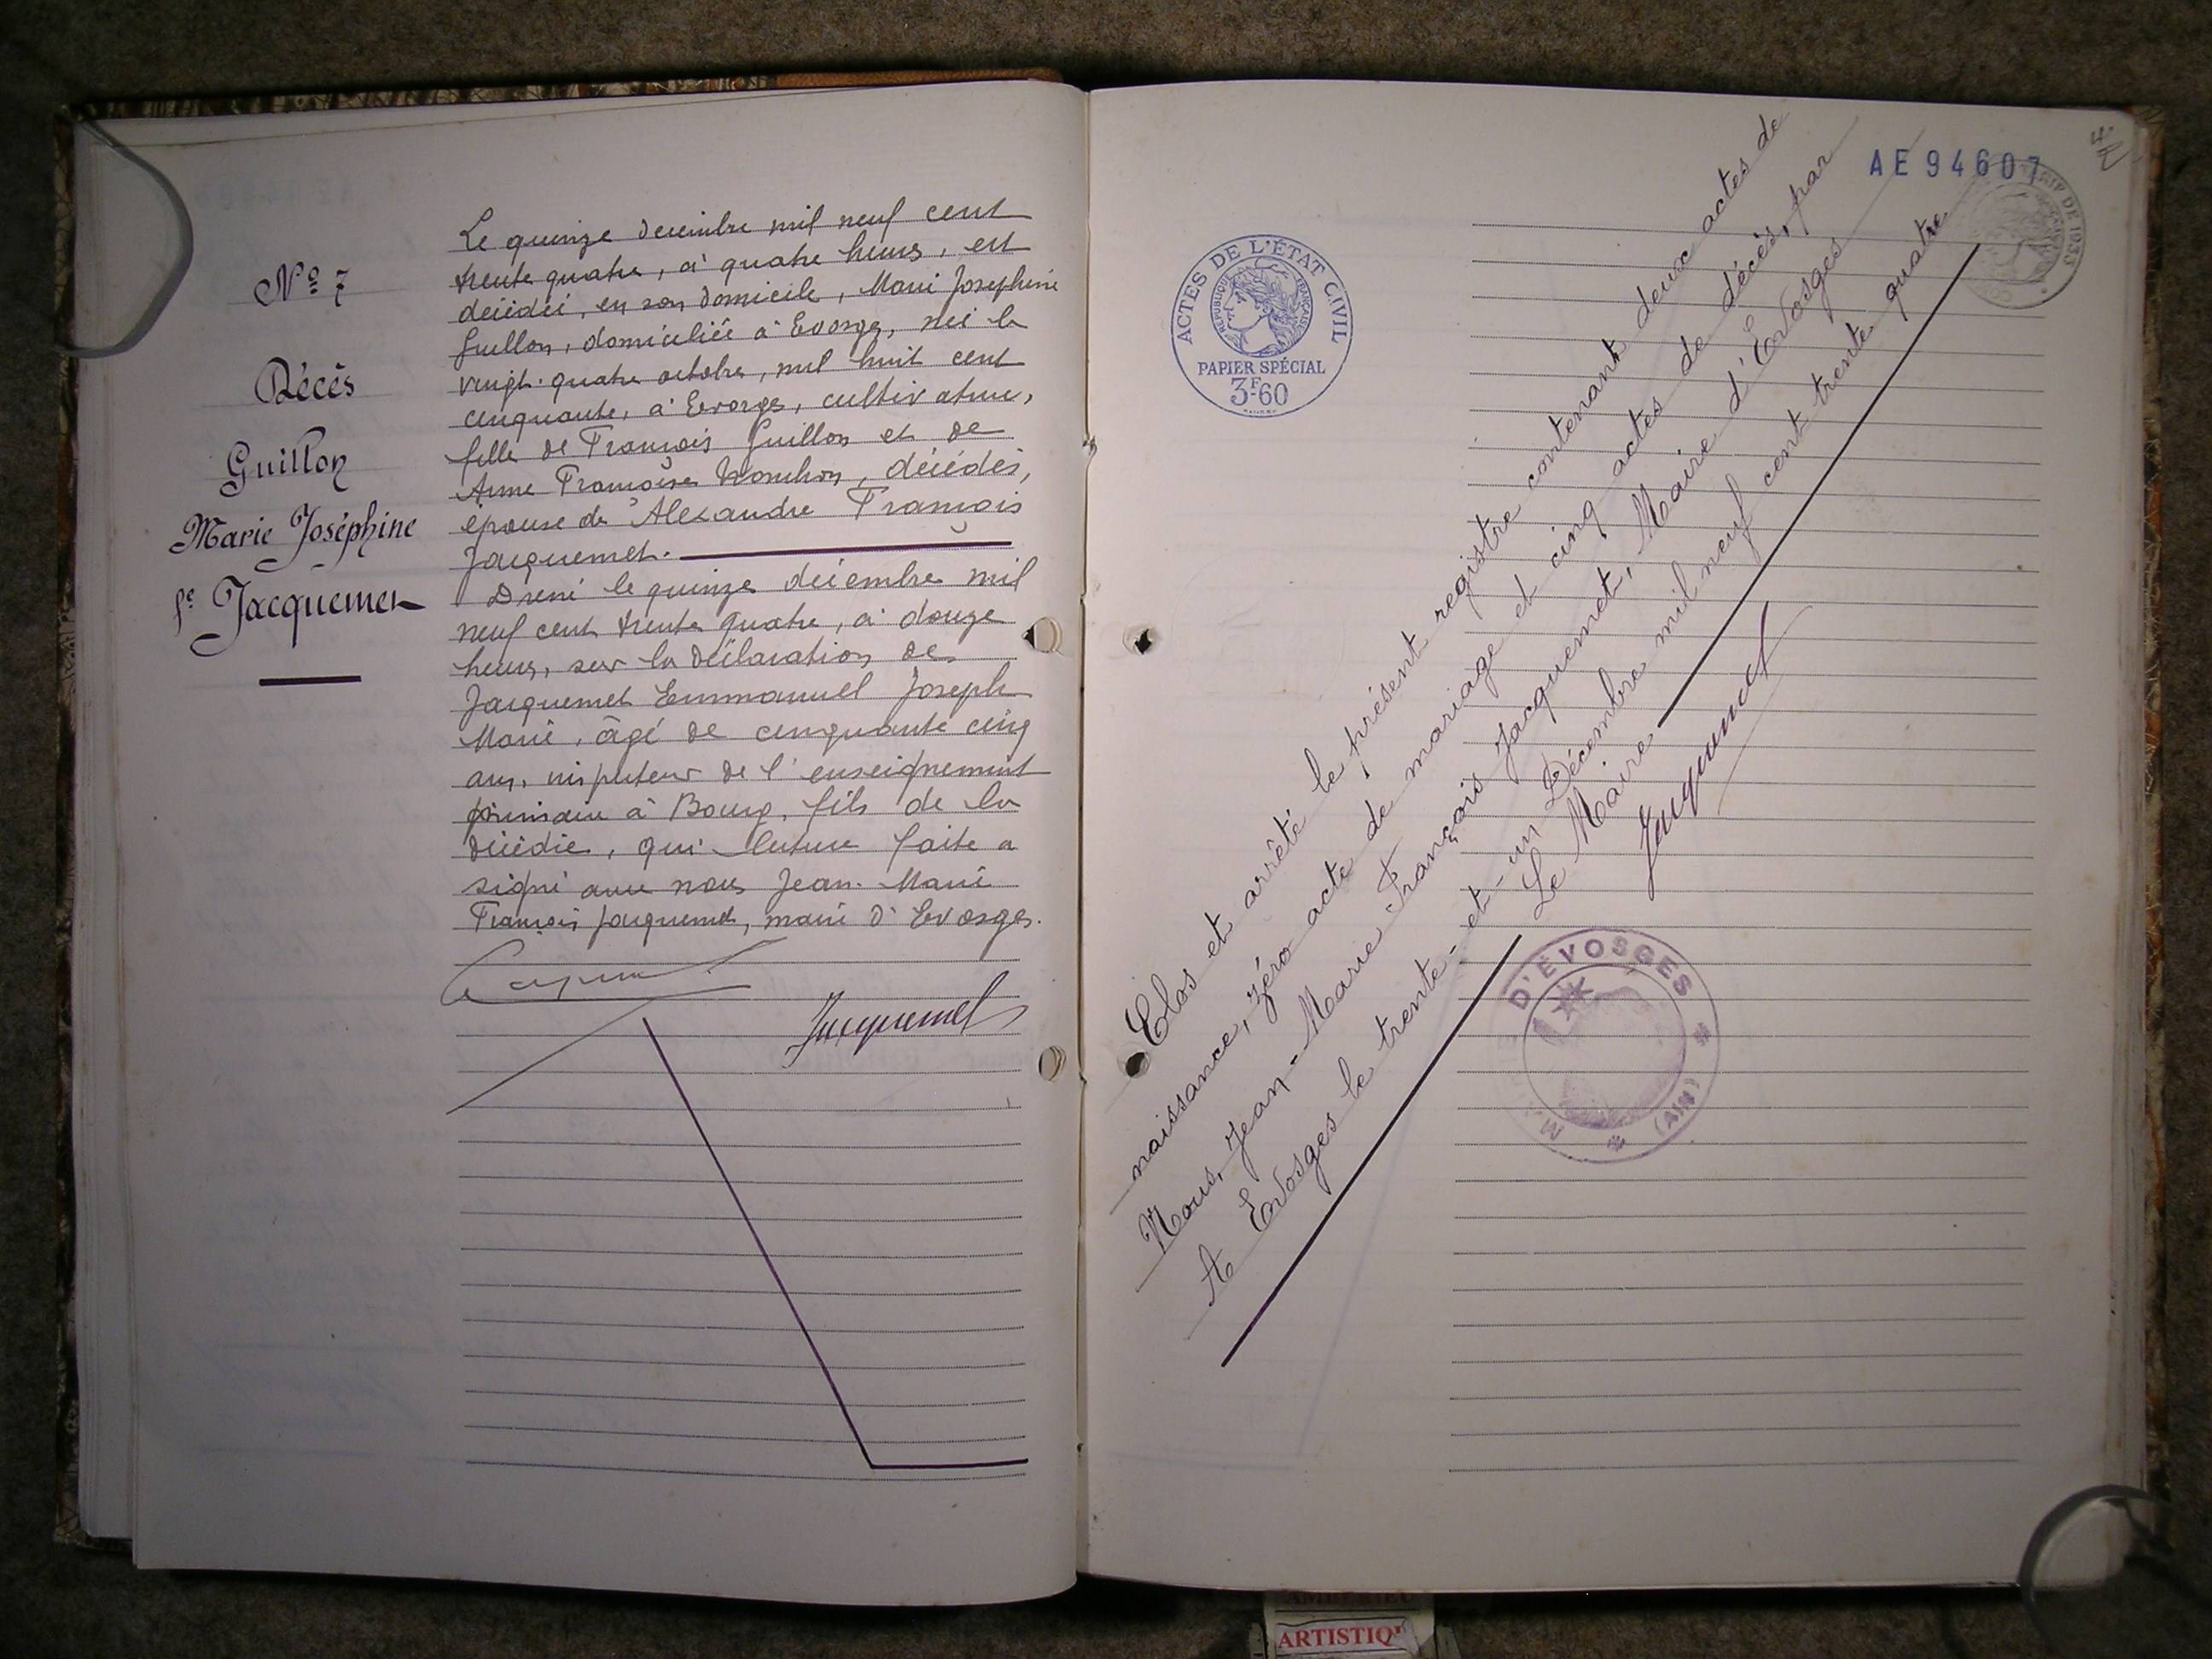 Nº 7
Décès
Guillon
Marie Joséphine
fe Jacquemet
Le quinze décembre mil neuf cent
trente quatre, à quatre heures, est
décédée, en son domicile, Marie Joséphine
Guillon, domiciliée à Evosges, née le
vingt-quatre octobre, mil huit cent
cinquante, à Evosges, cultivatrice,
fille de François Guillon et de
Anne Françoise, décédés,
épouse de Alexandre François
Jacquemet.
Dressé le quinze décembre mil
neuf cent trente quatre, à douze
heures, sur la déclaration de
Jacquemet Emmanuel Joseph
Marie, âgé de cinquante cinq
ans, inspecteur de l'enseignement
primaire à Bourg, fils de la
décédée, qui lecture faite a
signé avec nous Jean-Marie
François Jacquemet, maire d'Evosges.
Jacquemet
AE 94607
ACTES DE L'ÉTAT CIVIL
RÉPUBLIQUE FRANÇAISE
PAPIER SPÉCIAL
3F-60
DE 1933
Clos et arrêté le présent registre contenant deux actes de
naissance, zéro acte de mariage et cinq actes de décès, par
Nous, Jean-Marie François Jacquemet, Maire d'Evosges
A Evosges le trente-et-un Décembre mil neuf cent trente quatre
Le Maire
Jacquemet
D'ÉVOSGES
(AIN)
ARTISTIQ